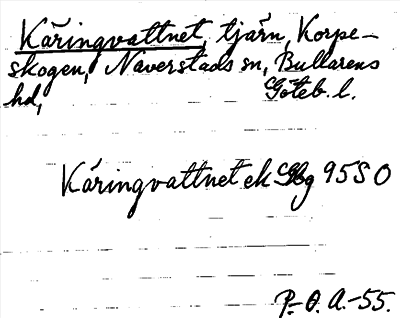 Käringvattnet, tjärn, Korpe-
skogen, Naverstads sn, Bullarens
hd, Göteb. l.
Käringvattnet ek Sbg 95SO
P.-O. A. -55.